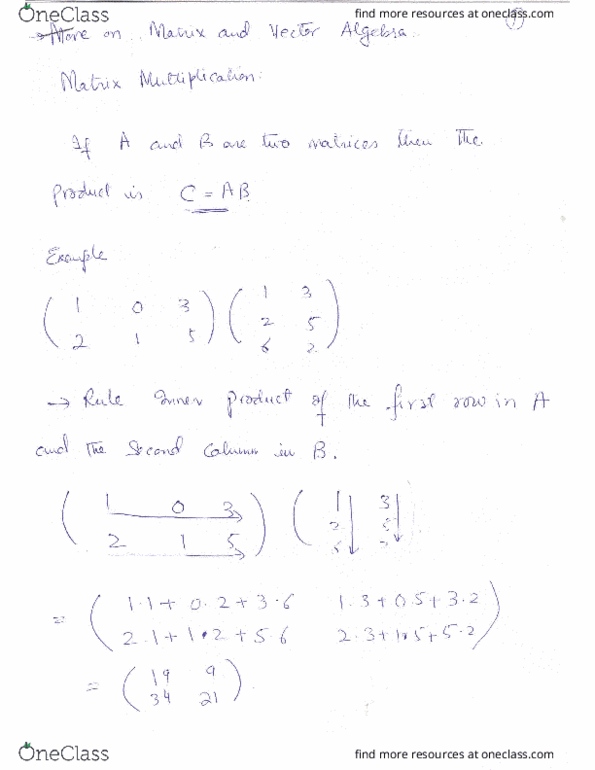 OneClass find more resources at oneclass.com
→ More on Matrix and Vector Algebra.
Matrix Multiplication:
If A and B are two matrices then the
product is C = AB.
Example
( 1 0 3 ) ( 1 3 )
( 2 1 5 ) ( 2 5 )
( 6 2 )
→ Rule Inner product of the first row in A
and the second column in B.
( 1 0 3 ) ( 1 3 )
( 2 1 5 ) ( 2 5 )
= ( 1.1 + 0.2 + 3.6 1.3 + 0.5 + 3.2 )
( 2.1 + 1.2 + 5.6 2.3 + 1.5 + 5.2 )
= ( 19 9 )
( 34 21 )
OneClass find more resources at oneclass.com